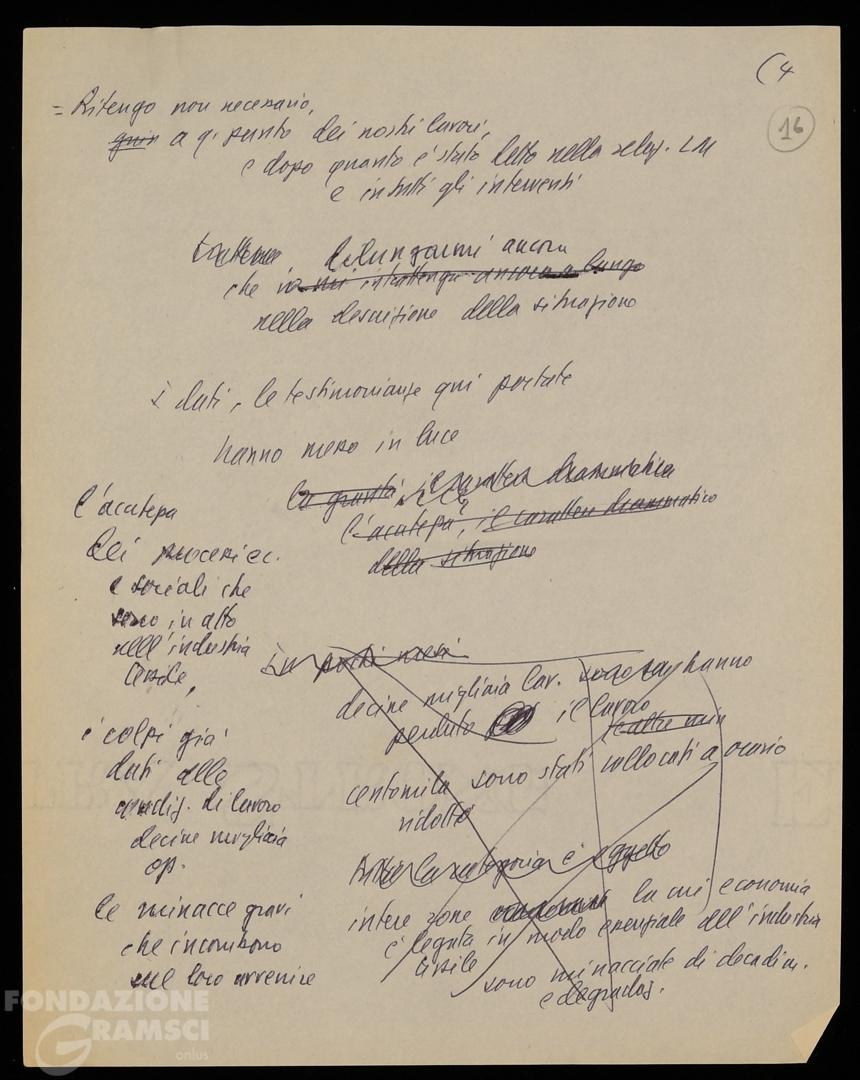 (4
16
= Ritengo non necessario,
quin a q. punto dei nostri lavori,
e dopo quanto è stato letto nella relaz. LM
e in tutti gli interventi
dilungarmi ancora
che io mi intrattenga ancora a lungo
nella descrizione della situazione
i dati, le testimonianze qui portate
hanno messo in luce
la gravità, il carattere drammatico
l'acutezza, il carattere drammatico
della situazione
l'acutezza
dei processi ec.
e sociali che
sono in atto
nell'industria
tessile,
i colpi già
dati alle
condiz. di lavoro
decine migliaia
op.
le minacce gravi
che incombono
sul loro avvenire
In pochi mesi
decine migliaia lav. hanno
perduto il lavoro
centomila sono stati collocati a orario
ridotto
la categoria è oggetto
intere zone la cui economia
è legata in modo essenziale all'industria
tessile
sono minacciate di decadim.
e degradaz.
FONDAZIONE
GRAMSCI
onlus